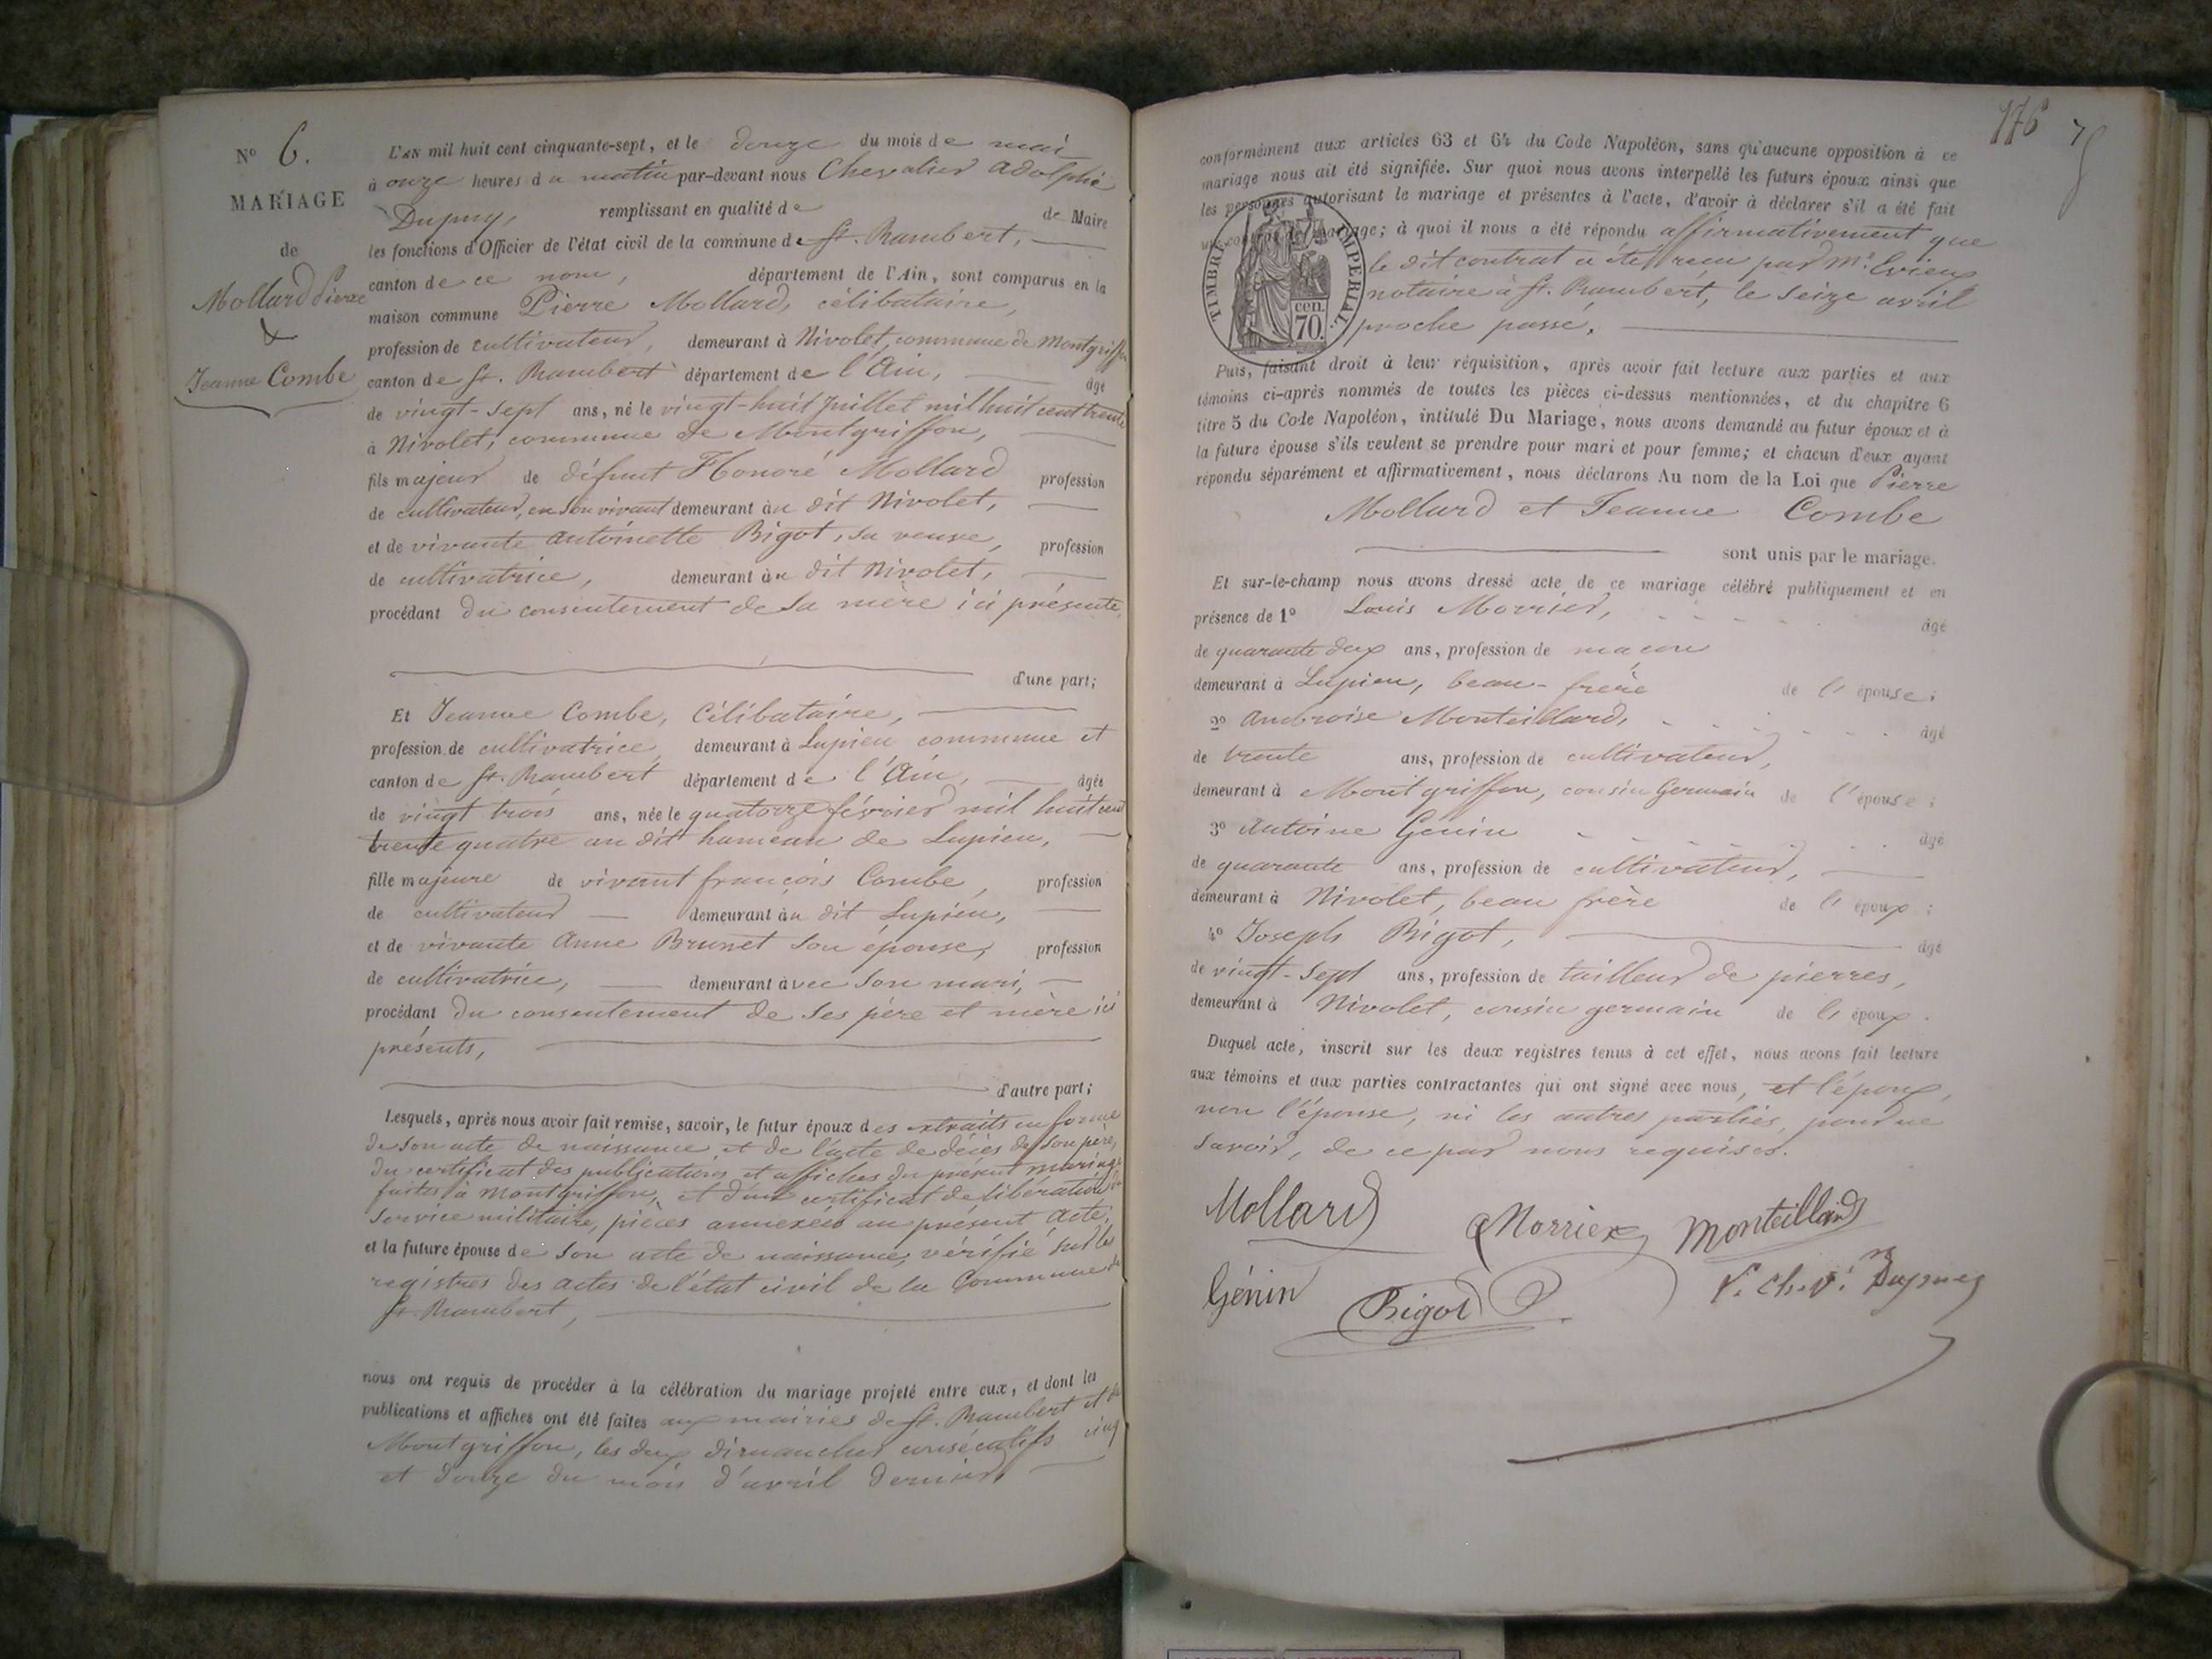 N° 6.
MARIAGE
de
Mollard Pierre
&
Jeanne Combe
L'AN mil huit cent cinquante-sept, et le douze du mois de mai
à onze heures du matin par-devant nous Chevalier Adolphe
Dupuy, remplissant en qualité de de Maire
les fonctions d'Officier de l'état civil de la commune de St. Rambert,
canton de ce nom, département de l'Ain, sont comparus en la
maison commune Pierre Mollard, célibataire,
profession de cultivateur, demeurant à Nivolet, commune de Montgriffon
canton de St. Rambert département de l'Ain, âgé
de vingt-sept ans, né le vingt-huit juillet mil huit cent trente
à Nivolet, commune de Montgriffon,
fils majeur de défunt Honoré Mollard profession
de cultivateur, en son vivant demeurant au dit Nivolet,
et de vivante Antoinette Bigot, sa veuve, profession
de cultivatrice, demeurant au dit Nivolet,
procédant du consentement de sa mère ici présente,
d'une part;
Et Jeanne Combe, célibataire,
profession de cultivatrice, demeurant à Lupieu commune et
canton de St. Rambert département de l'Ain, âgée
de vingt trois ans, née le quatorze février mil huit cent
trente quatre au dit hameau de Lupieu,
fille majeure de vivant françois Combe, profession
de cultivateur demeurant au dit Lupieu,
et de vivante Anne Brunet son épouse, profession
de cultivatrice, demeurant avec son mari,
procédant du consentement de ses père et mère ici
présents,
d'autre part;
Lesquels, après nous avoir fait remise, savoir, le futur époux des extraits en forme
de son acte de naissance et de l'acte de décès de son père,
du certificat des publications et affiches du présent mariage
faites à Montgriffon, et d'un certificat de libération du
service militaire, pièces annexées au présent acte,
et la future épouse de son acte de naissance, vérifié sur les
registres des actes de l'état civil de la Commune de
St. Rambert,
nous ont requis de procéder à la célébration du mariage projeté entre eux, et dont les
publications et affiches ont été faites aux mairies de St. Rambert et de
Montgriffon, les deux dimanches consécutifs cinq
et douze du mois d'avril dernier,
176
conformément aux articles 63 et 64 du Code Napoléon, sans qu'aucune opposition à ce
mariage nous ait été signifiée. Sur quoi nous avons interpellé les futurs époux ainsi que
les personnes autorisant le mariage et présentes à l'acte, d'avoir à déclarer s'il a été fait
un contrat de mariage; à quoi il nous a été répondu affirmativement que
le dit contrat a été reçu par Me. Evieux
notaire à St. Rambert, le seize avril
proche passé.
TIMBRE IMPERIAL
70 cen.
Puis, faisant droit à leur réquisition, après avoir fait lecture aux parties et aux
témoins ci-après nommés de toutes les pièces ci-dessus mentionnées, et du chapitre 6
titre 5 du Code Napoléon, intitulé Du Mariage, nous avons demandé au futur époux et à
la future épouse s'ils veulent se prendre pour mari et pour femme; et chacun d'eux ayant
répondu séparément et affirmativement, nous déclarons Au nom de la Loi que Pierre
Mollard et Jeanne Combe
sont unis par le mariage.
Et sur-le-champ nous avons dressé acte de ce mariage célébré publiquement et en
présence de 1° Louis Morrier, âgé
de quarante deux ans, profession de maçon
demeurant à Lupieu, beau-frère de l'épouse;
2° Ambroise Monteillard, âgé
de trente ans, profession de cultivateur,
demeurant à Montgriffon, cousin Germain de l'épouse;
3° Antoine Genin âgé
de quarante ans, profession de cultivateur,
demeurant à Nivolet, beau frère de l'époux;
4° Joseph Bigot, âgé
de vingt-sept ans, profession de tailleur de pierres,
demeurant à Nivolet, cousin germain de l'époux.
Duquel acte, inscrit sur les deux registres tenus à cet effet, nous avons fait lecture
aux témoins et aux parties contractantes qui ont signé avec nous, et l'époux,
non l'épouse, ni les autres parties, pour ne
savoir, de ce par nous requises.
Mollard Morrier Monteillard
Génin Bigot